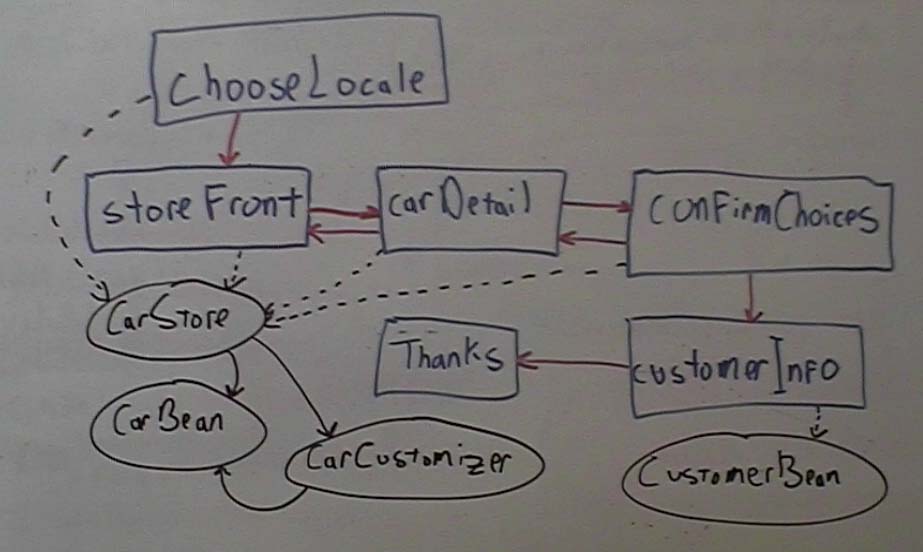 ChooseLocale
storeFront
carDetail
confirmChoices
CarStore
Thanks
customerInfo
CarBean
CarCustomizer
CustomerBean